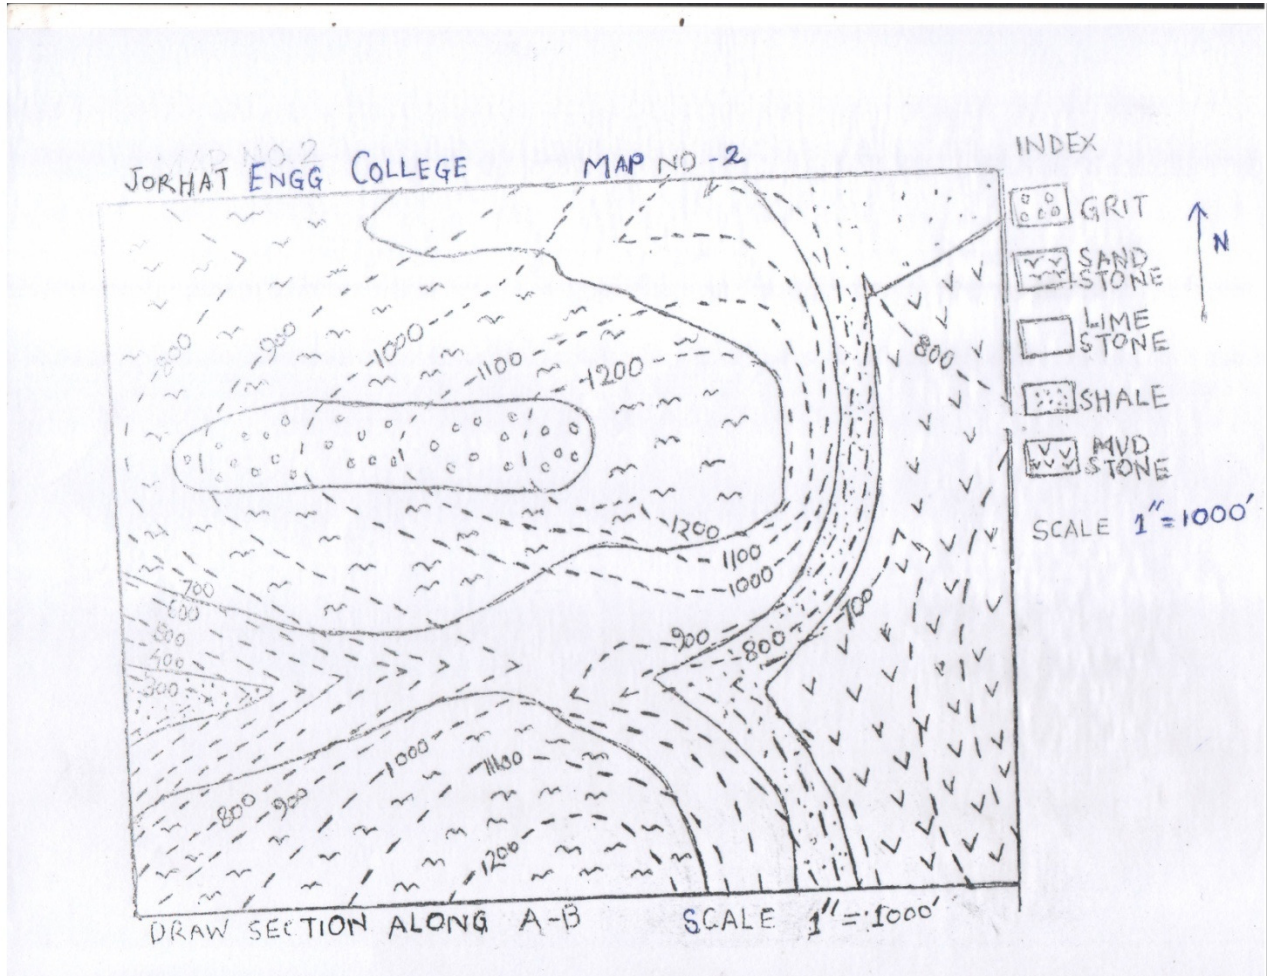 NO.2
JORHAT ENGG COLLEGE MAP NO-2
INDEX
GRIT
N
SAND
STONE
LIME
STONE
SHALE
MUD
STONE
SCALE 1"=1000'
800
900
1000
1100
1200
800
1200
1100
1000
700
600
400
300
900
800
700
1000
1100
800
900
1200
DRAW SECTION ALONG A-B SCALE 1"=1000'